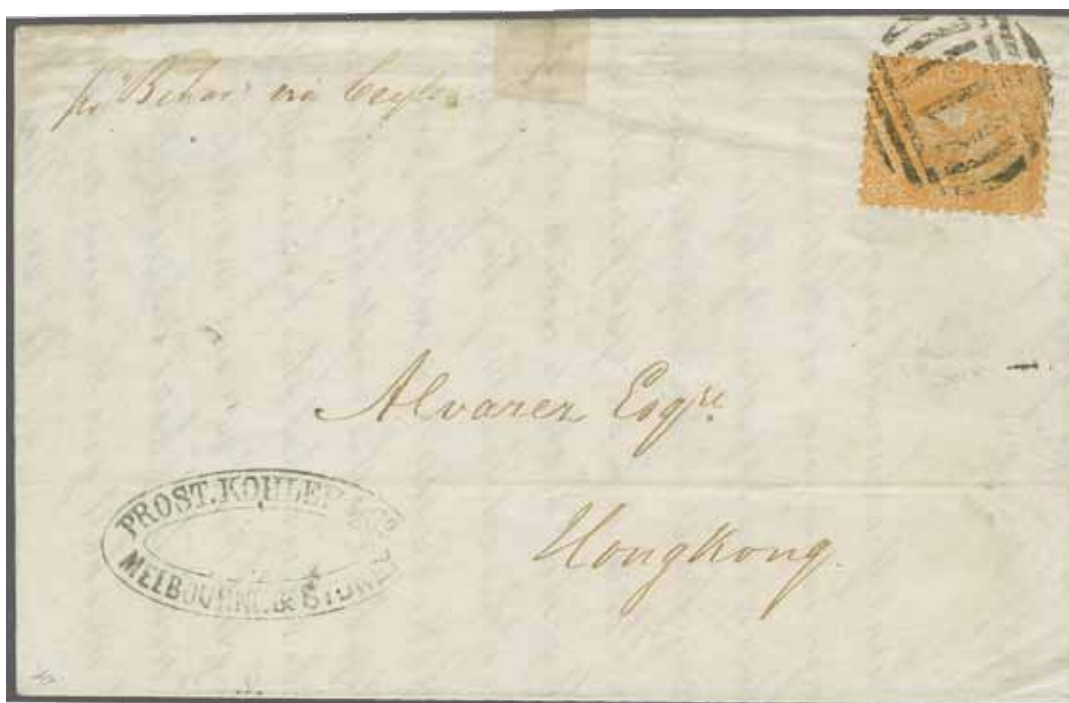 pr "Behar" via Ceylon
Alvarez Esqre.
Hongkong.
PROST. KOHLER & Co
MELBOURNE & SYDNEY